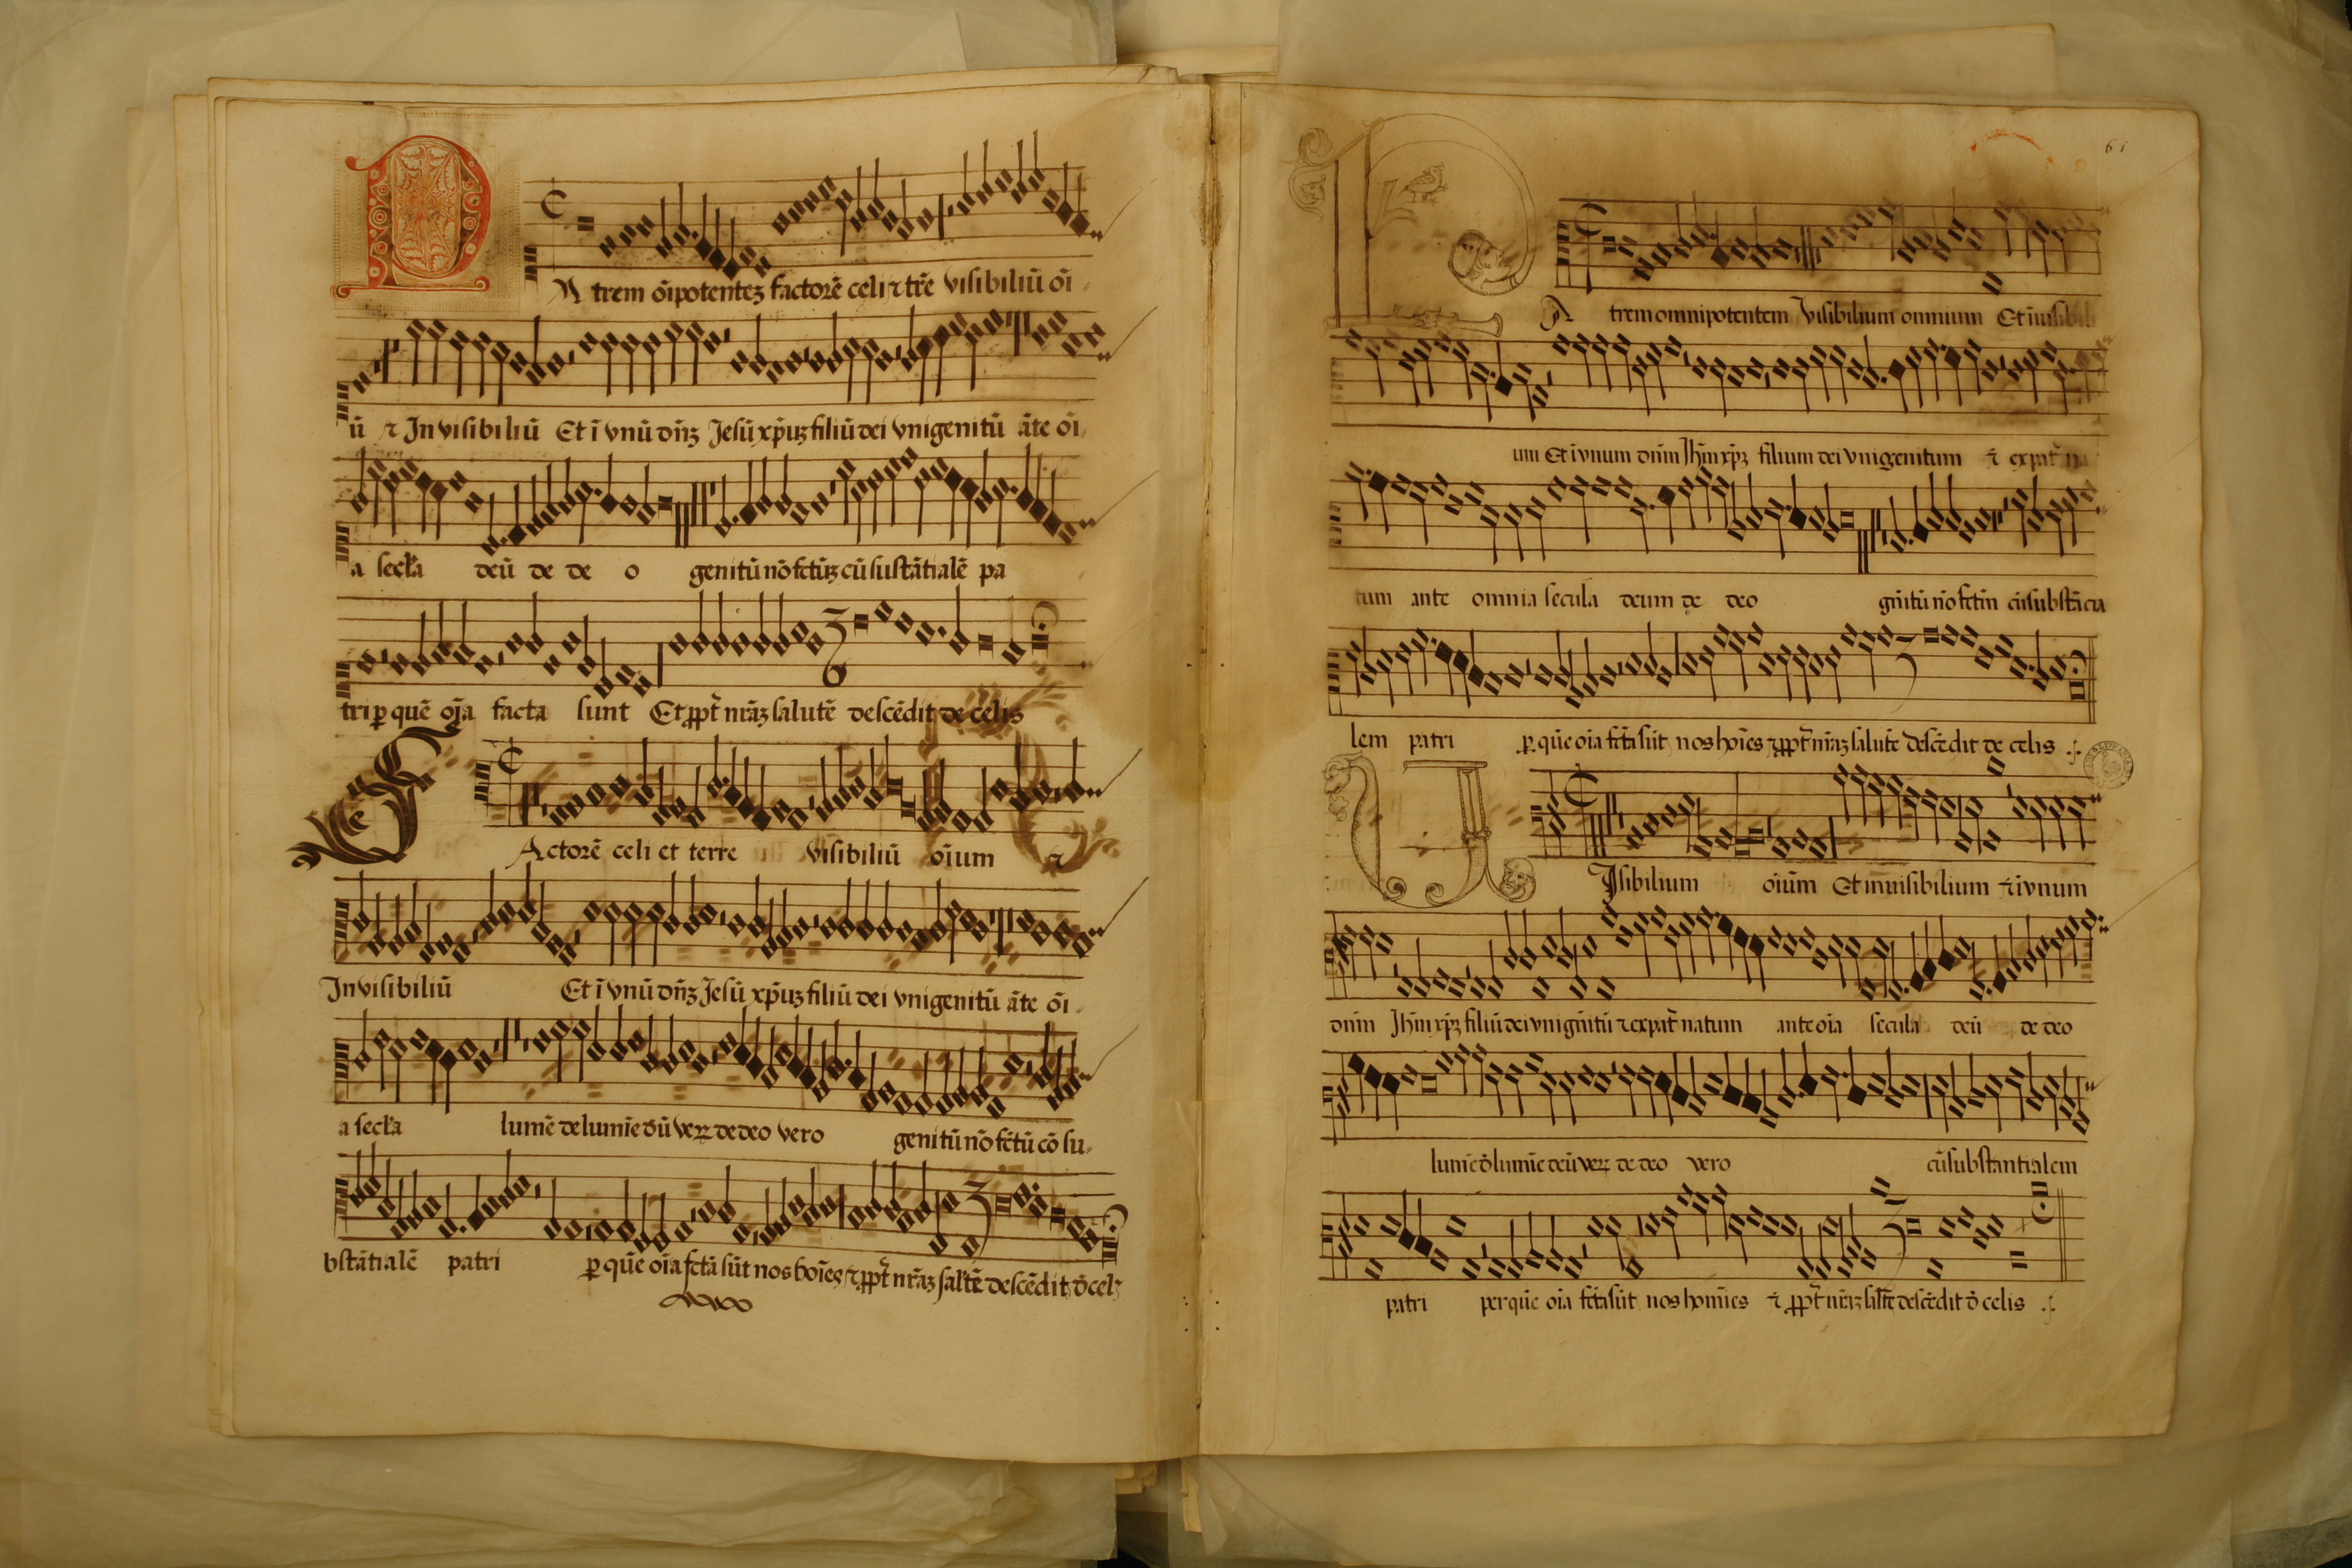 P
A trem oīpotenteꝫ factorē celi ⁊ trē visibiliū oī
ū ⁊ In visibiliū Et ī vnū dn̄ꝫ Jesū xp̄uꝫ filiū dei vnigenitū āte oī
a secła deū de de o genitū nō fctūꝫ cū sustātialē pa
tri ꝑ quē oīa facta sunt Et ꝓpt̄ nr̄aꝫ salutē descēdit de celis
F
Actorē celi et terre visibiliū oīum ⁊
In visibiliū Et ī vnū dn̄ꝫ Jesū xp̄uꝫ filiū dei vnigenitū āte oī
a secła lumē de lumīe dū veꝝ de deo vero genitū nō fctū cō su
bstātialē patri ꝑ quē oīa fctā sūt nos hoīes ⁊ ꝓpt̄ nr̄aꝫ sal̄tē descēdit d̄ cel
61
P
A trem omnipotentem Visibilium omnium Et īuisibili
um Et ī vnum dn̄m Jhm̄ xp̄ꝫ filium dei vnigenitum ⁊ ex pat̄ na
tum ante omnia secula deum de deo gn̄itū nō fctm̄ cūsubstācia
lem patri ꝑ quē oīa fctā sūt nos hoīes ⁊ ꝓpt̄ nr̄aꝫ salutē descēdit de celis
V
Isibilium oīum Et inuisibilium ⁊ ī vnum
dn̄m Jhm̄ xp̄ꝫ filiū dei vnign̄itū ⁊ ex pat̄ natum ante oīa secula deū de deo
lumē d̄ lumīe deū veꝝ de deo vero cūsubstantialem
patri per quē oīa fctā sūt nos homīes ⁊ ꝓpt̄ nr̄aꝫ sal̄tē descēdit d̄ celis